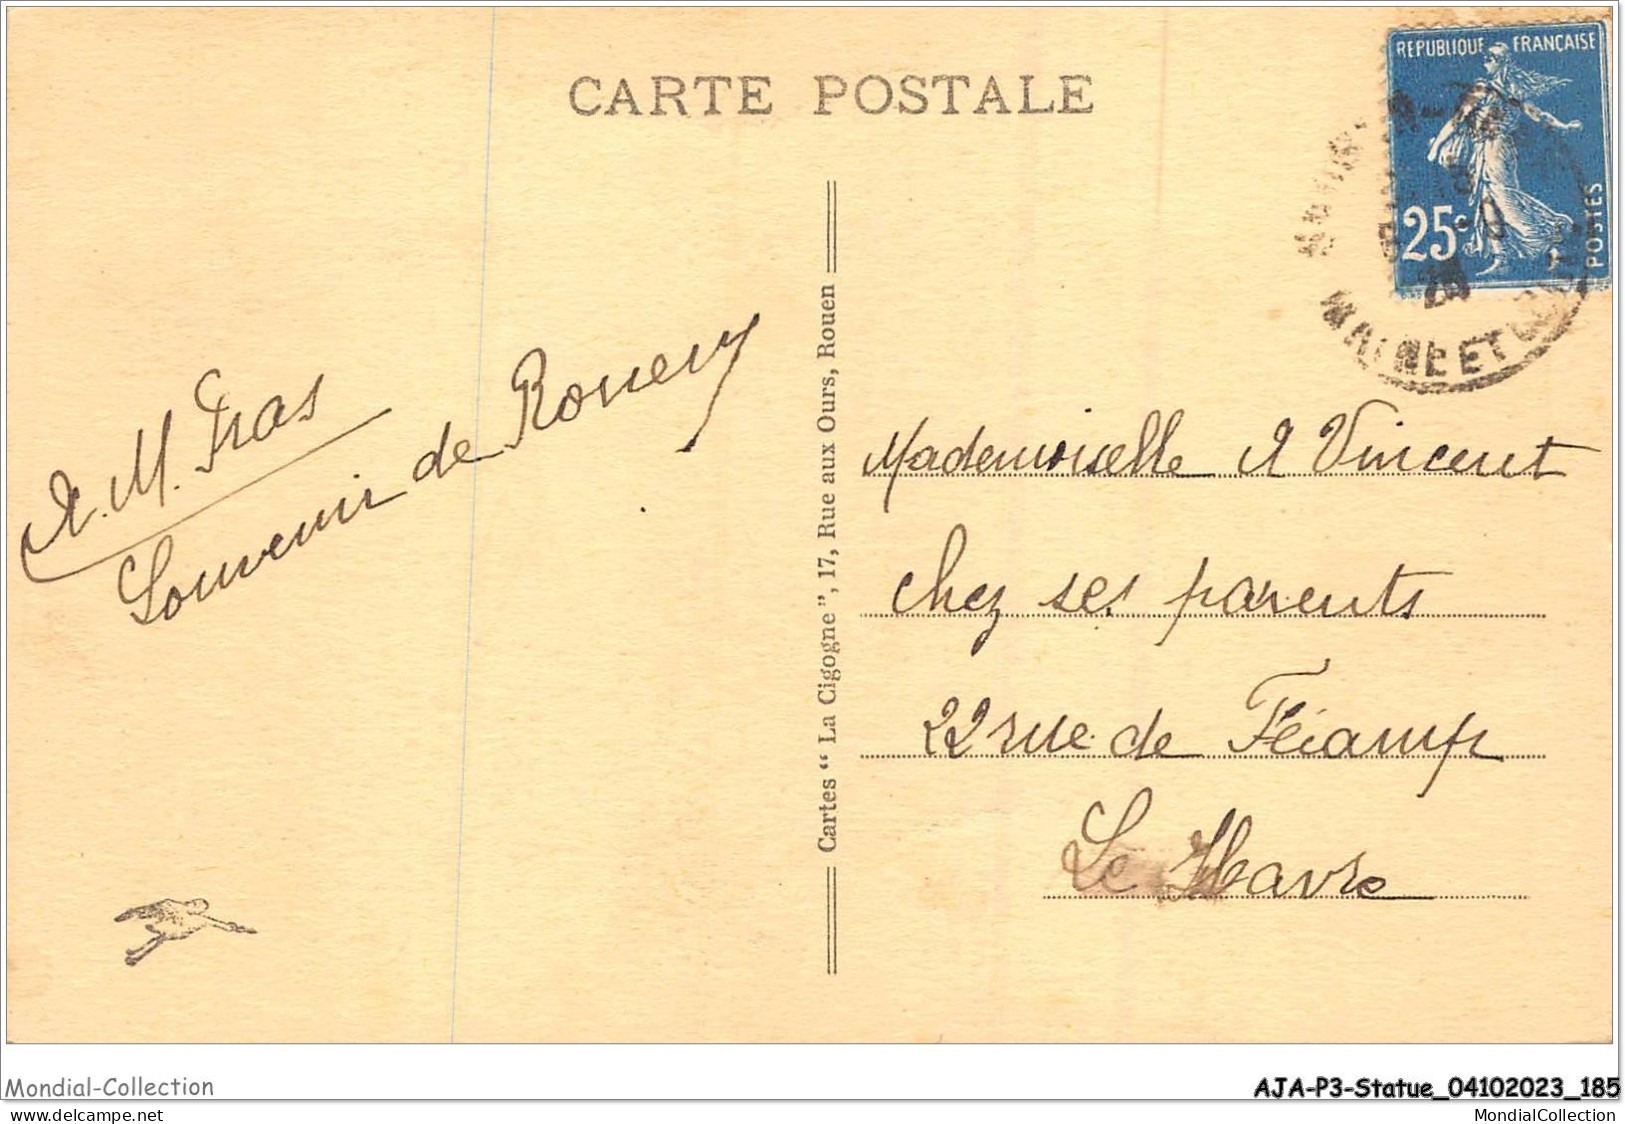 CARTE POSTALE
REPUBLIQUE FRANÇAISE
25c
POSTES
MAINE ET
A. M. Gras
Souvenir de Rouen
Cartes “ La Cigogne ”, 17, Rue aux Ours, Rouen
Mademoiselle A Vincent
chez ses parents
22 rue de Fécamp
Le Havre
Mondial-Collection
AJA-P3-Statue_04102023_185
www.delcampe.net
MondialCollection